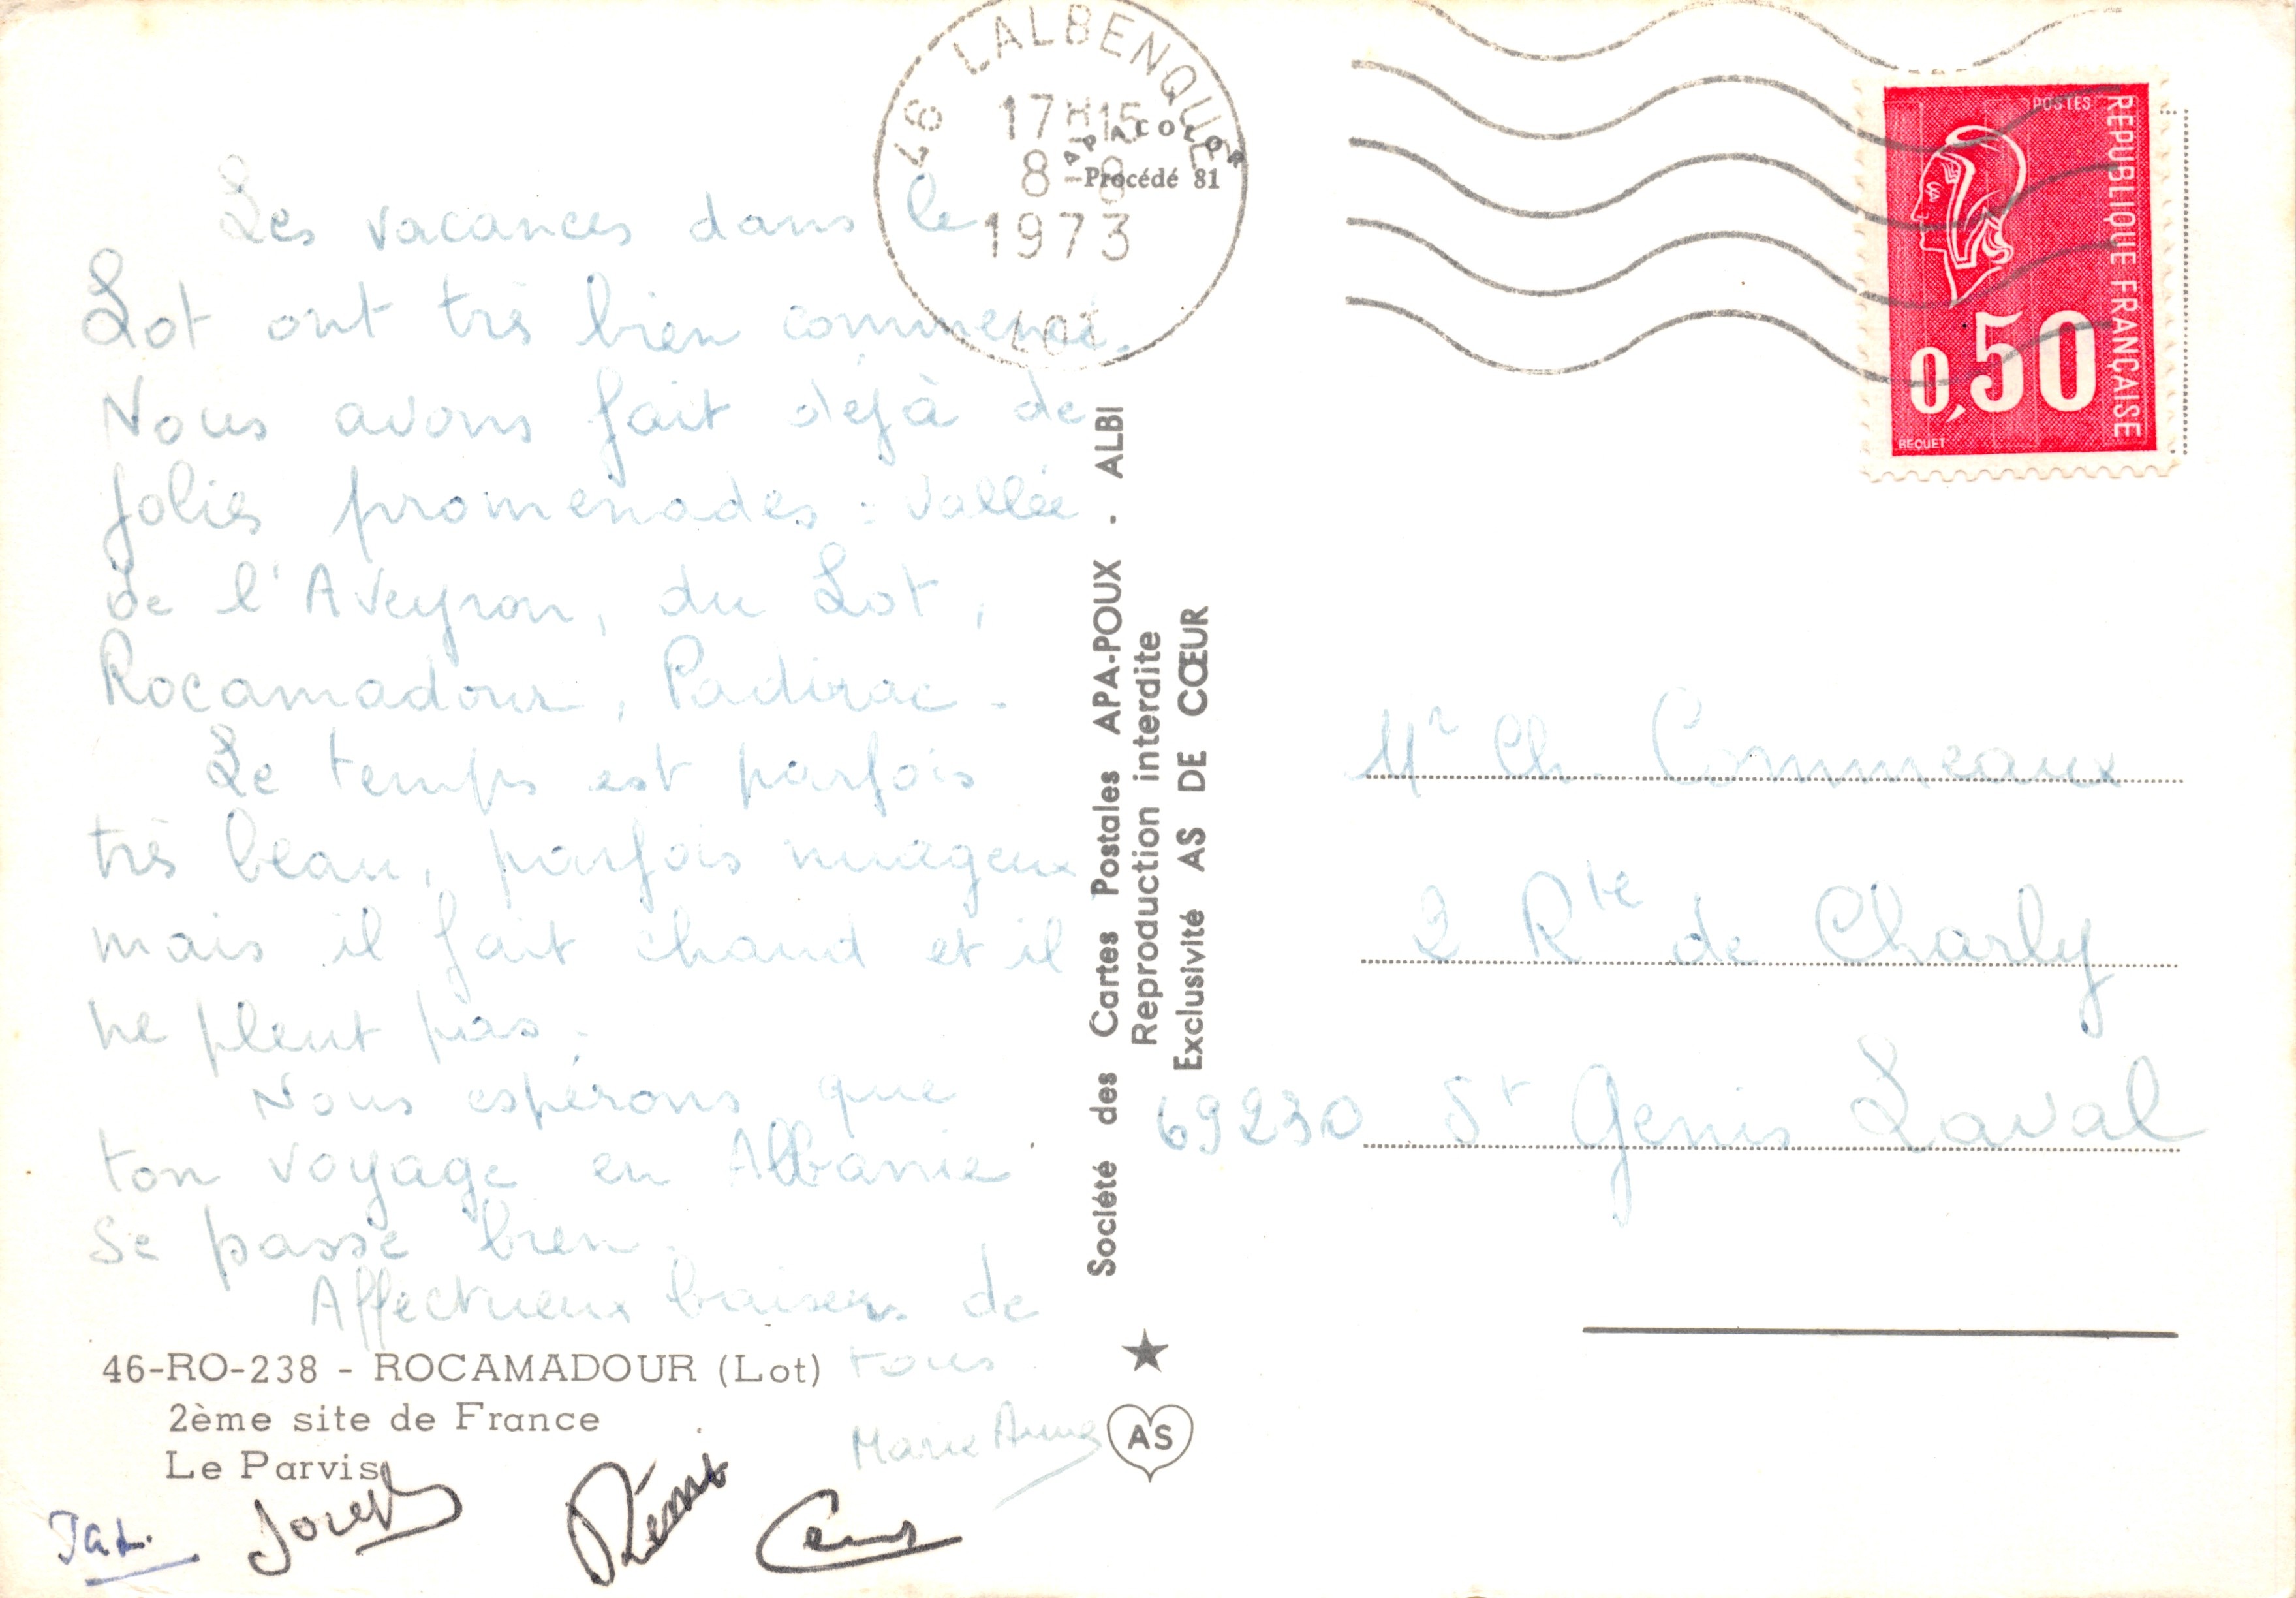 46 LALBENQUE
17H15
8-8
1973
LOT
APACOLOR
Procédé 81
POSTES
REPUBLIQUE FRANÇAISE
0,50
BEQUET
Les vacances dans le
Lot ont très bien commencé.
Nous avons fait déjà de
jolies promenades : vallée
de l'Aveyron, du Lot,
Rocamadour, Padirac.
Le temps est parfois
très beau, parfois nuageux
mais il fait chaud et il
ne pleut pas.
Nous espérons que
ton voyage en Albanie
se passe bien.
Affectueux baisers de
tous
Marie Anne
46-RO-238 - ROCAMADOUR (Lot)
2ème site de France
Le Parvis
Joseph
Rémi
Société des Cartes Postales APA-POUX . ALBI
Reproduction interdite
Exclusivité AS DE CŒUR
AS
Mr Ch. Commeaux
2 Rte de Charly
69230 St Genis Laval